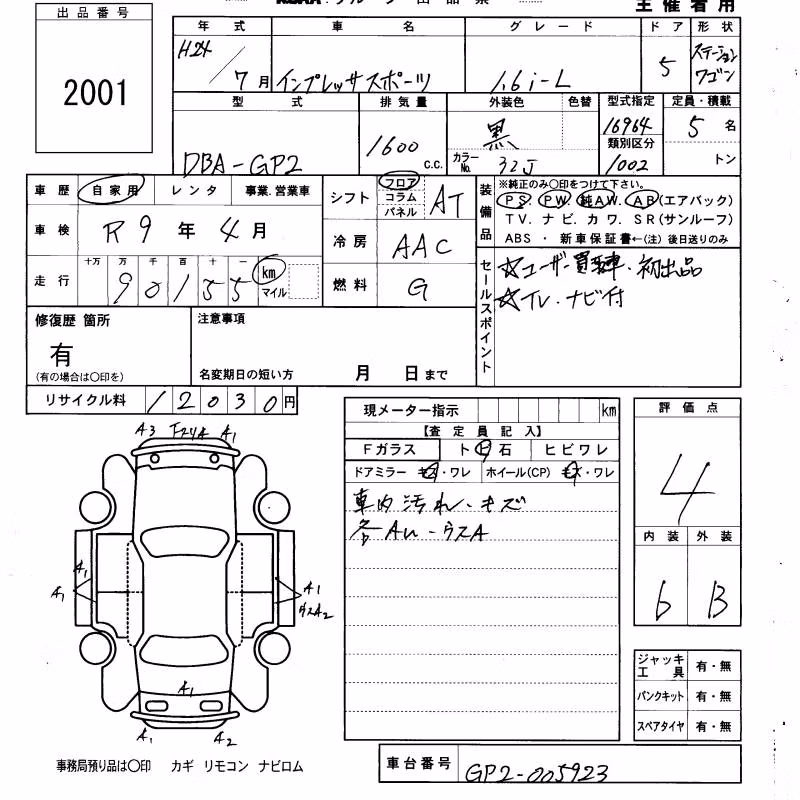 出品番号
2001
主催者用
年式 車名 グレード ドア 形状
H24/7月 インプレッサスポーツ 1.6i-L 5 ステーションワゴン
型式 排気量 外装色 色替 型式指定 定員・積載
DBA-GP2 1600 c.c. 黒 16964 5名
カラーNo. 32J 類別区分 1002 トン
車歴 自家用 レンタ 事業.営業車
車検 R9年4月
走行 十万 万 千 百 十 一
90155 km マイル
シフト フロア コラム パネル AT
冷房 AAC
燃料 G
装備品
※純正のみ〇印をつけて下さい。
PS. PW. 純AW. AB(エアバック)
TV. ナビ. カワ. SR(サンルーフ)
ABS ・ 新車保証書←(注)後日送りのみ
セールスポイント
☆ユーザー買取車・初出品
☆TV.ナビ付
修復歴 箇所
有
(有の場合は〇印を)
注意事項
名変期日の短い方 月 日まで
リサイクル料 12030円
現メーター指示 km
【査定員記入】
Fガラス ト ビ 石 ヒビワレ
ドアミラー キズ・ワレ ホイール(CP) キズ・ワレ
車内汚れ・キズ
各AU-ウスA
評価点
4
内装 外装
6 B
ジャッキ工具 有・無
パンクキット 有・無
スペアタイヤ 有・無
A3 A1
A1
A1
A1
ウスA2
A1
A1 A2
事務局預り品は〇印 カギ リモコン ナビロム
車台番号 GP2-005923